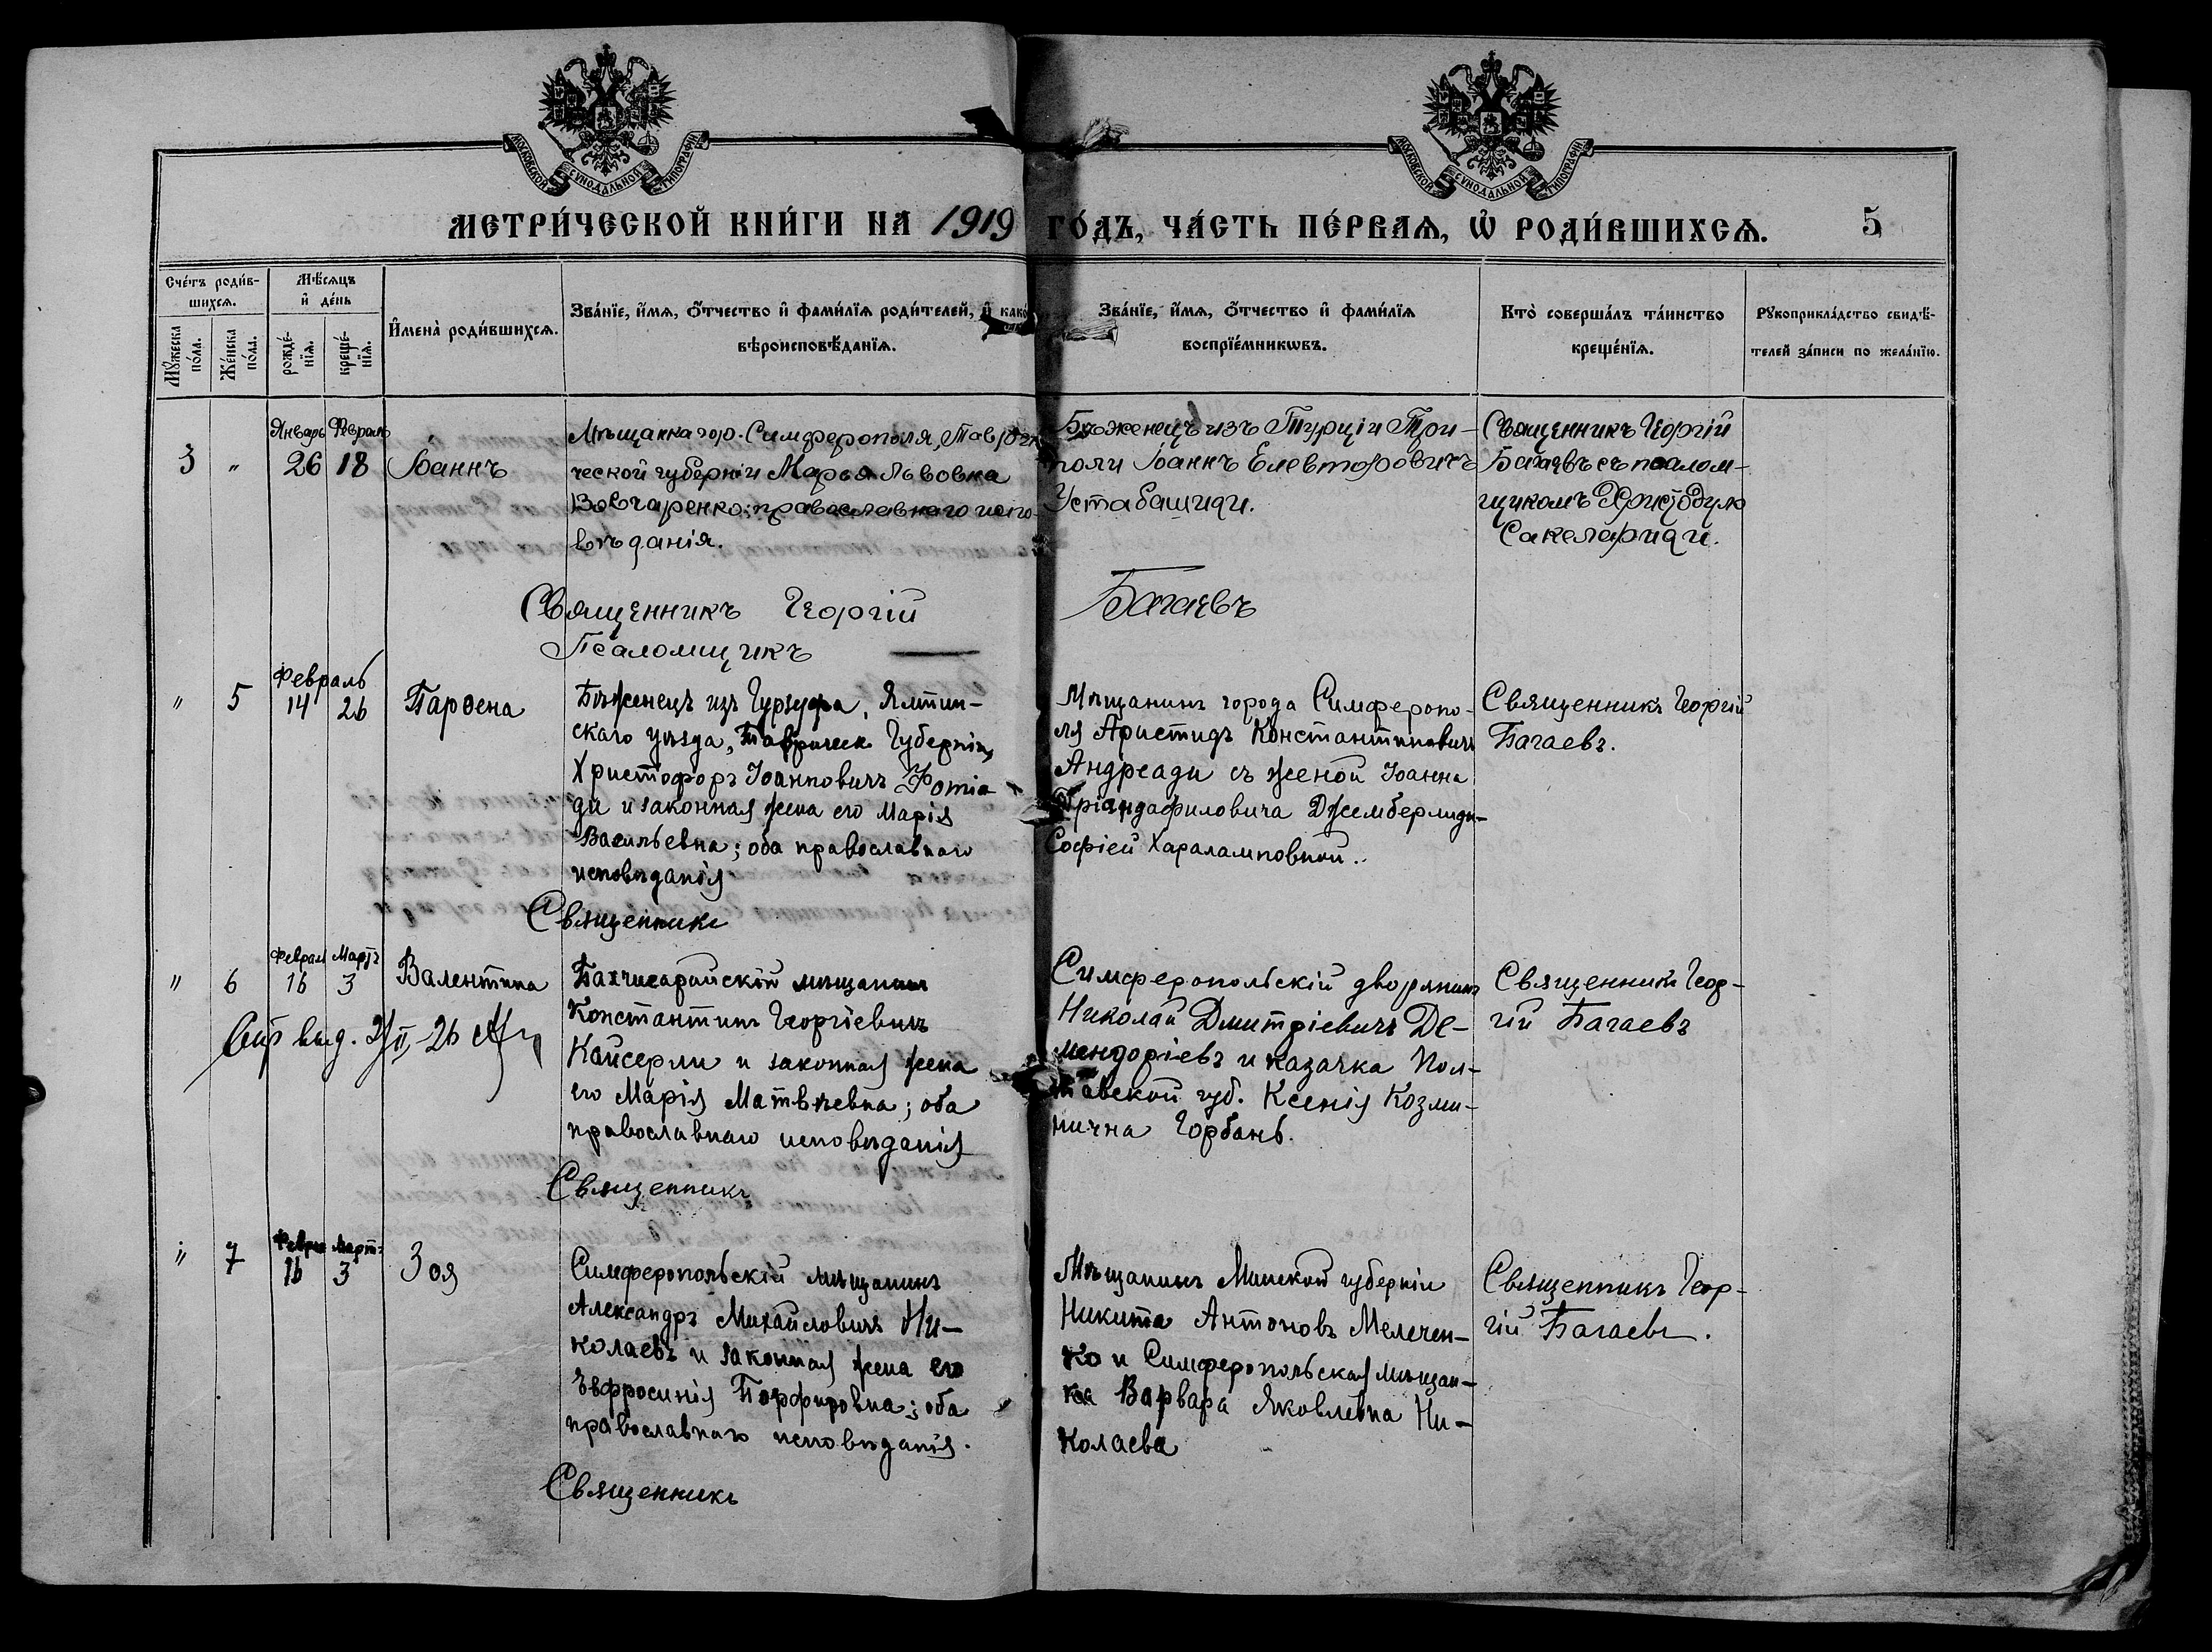 МОСКОВСКОЙ СУНОДАЛЬНОЙ ТИПОГРАФІИ
МОСКОВСКОЙ СУНОДАЛЬНОЙ ТИПОГРАФІИ
МЕТРИ́ЧЕСКОЙ КНИ́ГИ НА 1919 ГО́ДЪ, ЧА́СТЬ ПЕ́РВАѦ, Ѡ҆ РОДИ́ВШИХСѦ. 5
Сче́тъ роди́в-
шихсѧ.
Мꙋ́жеска
по́ла.
Же́нска
по́ла.
Мѣ́сѧцъ
и҆ де́нь
рожде́-
нїѧ.
креще́-
нїѧ.
И҆мена̀ роди́вшихсѧ.
Зва́нїе, и҆́мѧ, ѻ҆́тчество и҆ фами́лїѧ роди́телей, и҆ како́
вѣроисповѣ́данїѧ.
Зва́нїе, и҆́мѧ, ѻ҆́тчество и҆ фами́лїѧ
воспрїе́мникѡвъ.
Кто̀ соверша́лъ та́инство
креще́нїѧ.
Рꙋкоприкла́дство свидѣ́-
телей за́писи по жела́нїю.
3 " Январь 26 Февраль 18 Іоаннъ
Мѣщанка гор. Симферополя, Таври-
ческой губерніи Марья Львовна
Вовчаренко; православнаго испо-
вѣданія.
Бѣженецъ изъ Турціи Три-
поли Іоаннъ Елевтеровичъ
Устабашиди.
Священникъ Георгій
Багаевъ съ псалом-
щикомъ Христодуло
Сакелариди.
Священникъ Георгій Багаевъ
Псаломщикъ —
" 5 Февраль 14 26 Парѳена
Бѣженецъ изъ Гурзуфа, Ялтин-
скаго уѣзда, Таврическ. Губерніи,
Христофоръ Іоанновичъ Фотіа-
ди и законная жена его Марія
Васильевна; оба православнаго
исповѣданія
Мѣщанинъ города Симферопо-
ля Аристидъ Константиновичъ
Андреади съ женой Іоанна
Тріандафиловича Джемберлиди-
Софіей Хараламповной..
Священникъ Георгій
Багаевъ.
Священникъ
" 6 Феврал 16 Мартъ 3 Валентина
выд. 26
Бахчисарайскій мѣщанинъ
Константинъ Георгіевичъ
Кайсерли и законная жена
его Марія Матвѣевна; оба
православнаго исповѣданія
Симферопольскій дворянинъ
Николай Дмитріевичъ Де-
мендоріевъ и казачка Пол-
тавской губ. Ксенія Козми-
нична Горбань.
Священникъ Геор-
гій Багаевъ
Священникъ
" 7 Февра 16 Мартъ 3 Зоя
Симферопольскій мѣщанинъ
Александръ Михайловичъ Ни-
колаевъ и законная жена его
Ефросинія Порфировна; оба
православнаго исповѣданія.
Мѣщанинъ Минской губерніи
Никита Антоновъ Мелечен-
ко и Симферопольская мѣщан-
ка Варвара Яковлевна Ни-
колаева
Священникъ Геор-
гій Багаевъ.
Священникъ